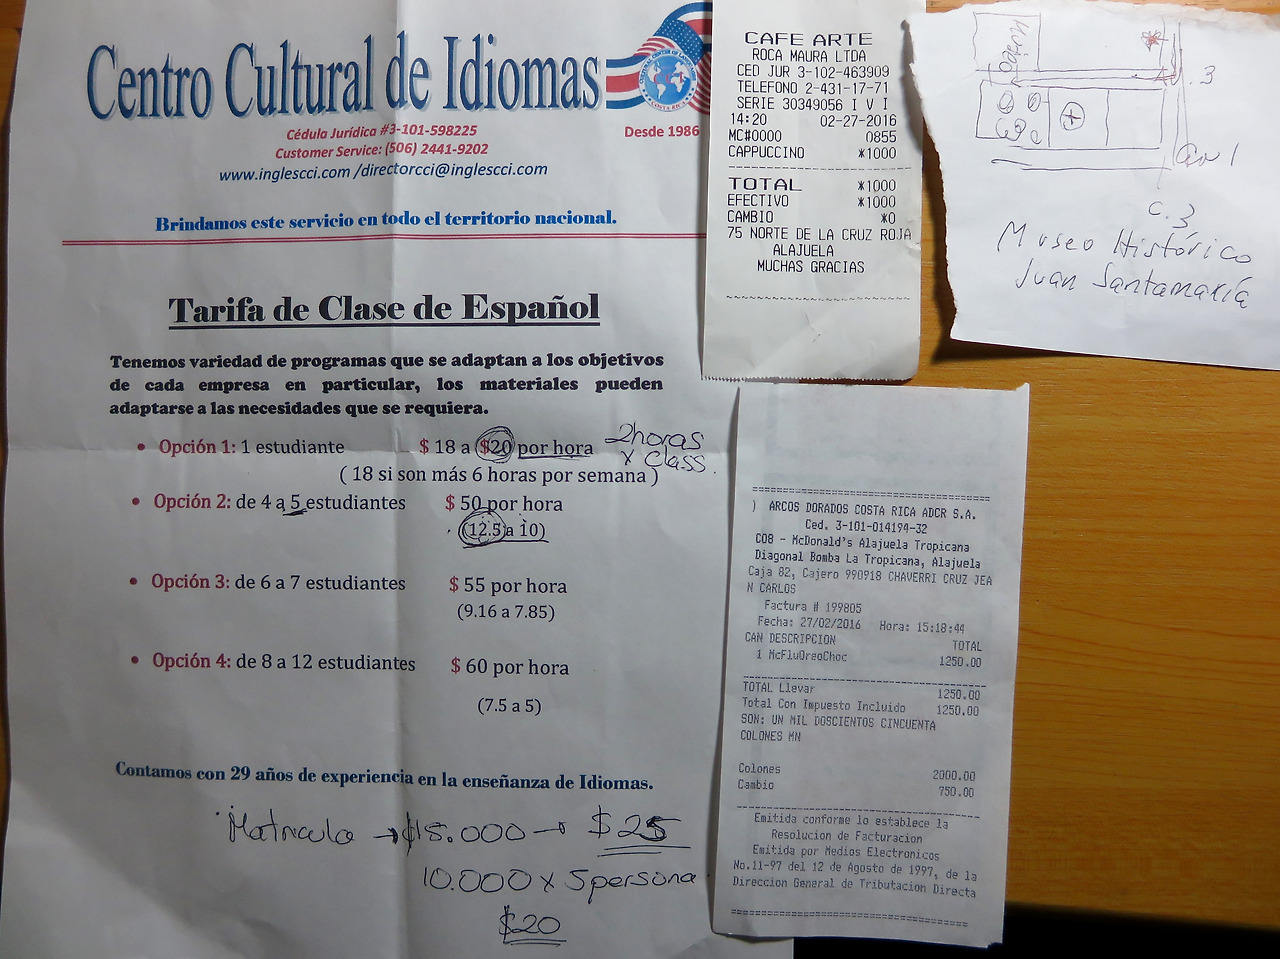 Centro Cultural de Idiomas
Cédula Jurídica #3-101-598225
Desde 1986
Customer Service: (506) 2441-9202
www.inglescci.com /directorcci@inglescci.com
Brindamos este servicio en todo el territorio nacional.
Tarifa de Clase de Español
Tenemos variedad de programas que se adaptan a los objetivos
de cada empresa en particular, los materiales pueden
adaptarse a las necesidades que se requiera.
• Opción 1: 1 estudiante $ 18 a $20 por hora
2horas
x Class.
( 18 si son más 6 horas por semana )
• Opción 2: de 4 a 5 estudiantes $ 50 por hora
(12.5 a 10)
• Opción 3: de 6 a 7 estudiantes $ 55 por hora
(9.16 a 7.85)
• Opción 4: de 8 a 12 estudiantes $ 60 por hora
(7.5 a 5)
Contamos con 29 años de experiencia en la enseñanza de Idiomas.
Matricula → $15.000 → $25
10.000 x 5persona
$20
CAFE ARTE
ROCA MAURA LTDA
CED JUR 3-102-463909
TELEFONO 2-431-17-71
SERIE 30349056 I V I
14:20 02-27-2016
MC#0000 0855
CAPPUCCINO *1000
TOTAL *1000
EFECTIVO *1000
CAMBIO *0
75 NORTE DE LA CRUZ ROJA
ALAJUELA
MUCHAS GRACIAS
Museo
C. 3
C. 3
Museo Histórico
Juan Santamaría
) ARCOS DORADOS COSTA RICA ADCR S.A.
Ced. 3-101-014194-32
C08 - McDonald's Alajuela Tropicana
Diagonal Bomba La Tropicana, Alajuela
Caja 82, Cajero 990918 CHAVERRI CRUZ JEA
N CARLOS
Factura # 199805
Fecha: 27/02/2016 Hora: 15:18:44
CAN DESCRIPCION TOTAL
1 McFluOreoChoc 1250.00
TOTAL Llevar 1250.00
Total Con Impuesto Incluido 1250.00
SON: UN MIL DOSCIENTOS CINCUENTA
COLONES MN
Colones 2000.00
Cambio 750.00
Emitida conforme lo establece la
Resolucion de Facturacion
Emitida por Medios Electronicos
No.11-97 del 12 de Agosto de 1997, de la
Direccion General de Tributacion Directa